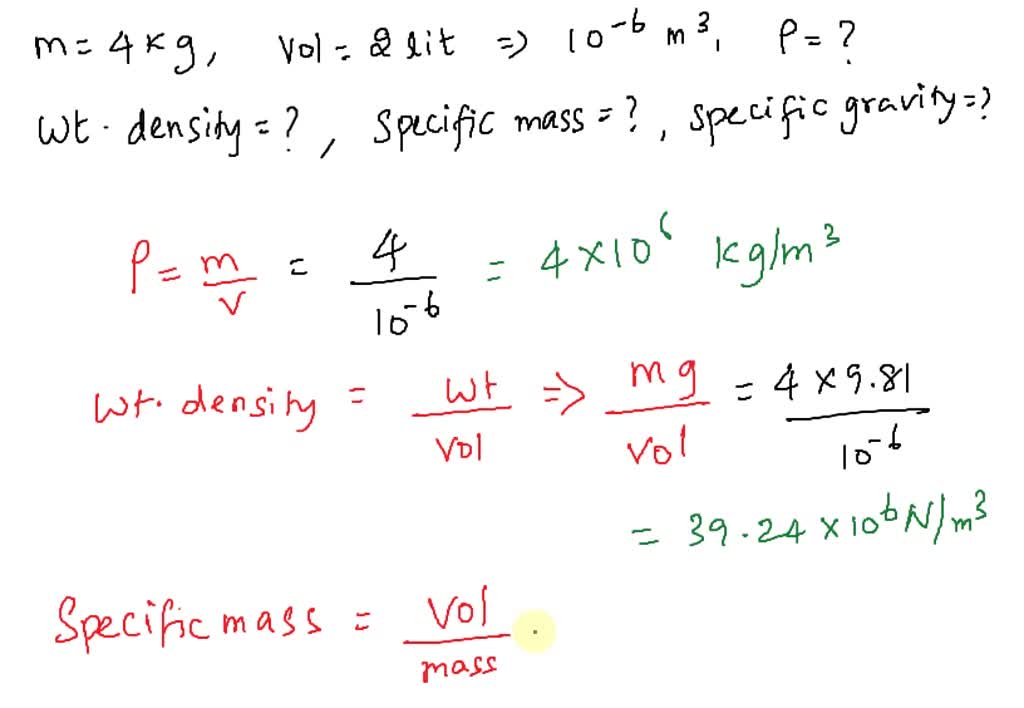 m = 4 kg, Vol = 2 lit => 10⁻⁶ m³, ρ = ?
Wt. density = ?, Specific mass = ?, Specific gravity = ?
ρ = m/V = 4/10⁻⁶ = 4×10⁶ kg/m³
Wt. density = Wt/Vol => mg/Vol = 4 × 9.81/10⁻⁶
= 39.24 × 10⁶ N/m³
Specific mass = Vol/mass